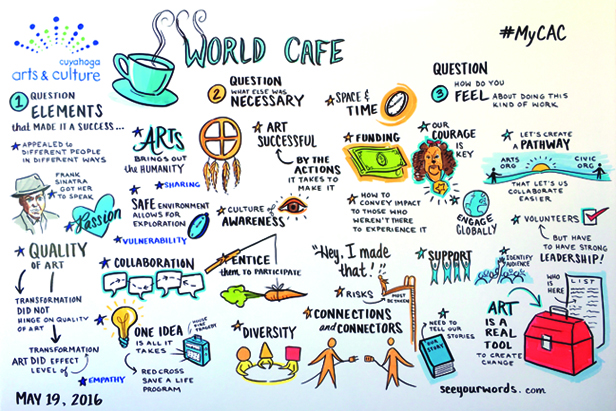 cuyahoga
arts & culture
WORLD CAFE
#MyCAC
1 QUESTION
ELEMENTS
that MADE IT A SUCCESS...
APPEALED to
DIFFERENT PEOPLE
IN DIFFERENT WAYS
FRANK
SINATRA
GOT HER
TO SPEAK
Passion
QUALITY
OF ART
TRANSFORMATION
DID NOT
HINGE ON QUALITY
OF ART
TRANSFORMATION
ART DID EFFECT
LEVEL OF
EMPATHY
ARTS
BRINGS OUT
the HUMANITY
SHARING
SAFE ENVIRONMENT
ALLOWS FOR
EXPLORATION
VULNERABILITY
COLLABORATION
ONE IDEA
IS ALL IT
TAKES
HOUSE
FIRE
TRAGEDY
RED CROSS
SAVE A LIFE
PROGRAM
2 QUESTION
WHAT ELSE WAS
NECESSARY
ART
SUCCESSFUL
BY THE
ACTIONS
IT TAKES TO
MAKE IT
CULTURE
AWARENESS
ENTICE
them TO PARTICIPATE
DIVERSITY
SPACE &
TIME
FUNDING
HOW TO
CONVEY IMPACT
TO THOSE WHO
WEREN'T THERE
TO EXPERIENCE IT
"Hey, I made
that!"
RISKS
MUST
CONNECTIONS
and CONNECTORS
3 QUESTION
HOW DO YOU
FEEL ABOUT DOING THIS
KIND OF WORK
OUR
COURAGE
IS
KEY
ENGAGE
GLOBALLY
SUPPORT
IDENTIFY
AUDIENCE
NEED TO
TELL OUR
STORIES
OUR
STORY
LET'S CREATE
A PATHWAY
ARTS
ORG
CIVIC
ORG
THAT LET'S US
COLLABORATE
EASIER
VOLUNTEERS
BUT HAVE TO
HAVE STRONG
LEADERSHIP!
WHO
IS
HERE
LIST
ART
IS A
REAL
TOOL
TO CREATE
CHANGE
MAY 19, 2016
seeyourwords.com